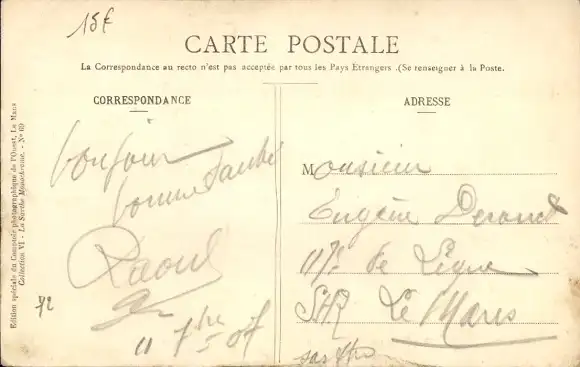 15€
CARTE POSTALE
La Correspondance au recto n'est pas acceptée par tous les Pays Etrangers .(Se renseigner à la Poste.
CORRESPONDANCE
bonjour
bonne santé
Raoul
11 7bre 07
72
ADRESSE
Monsieur
Eugène
117e de Ligne
Le Mans
Sarthe
Edition spéciale du Comptoir photographique de l'Ouest, Le Mans
Collection VI - La Sarthe Monochrome. - No 69